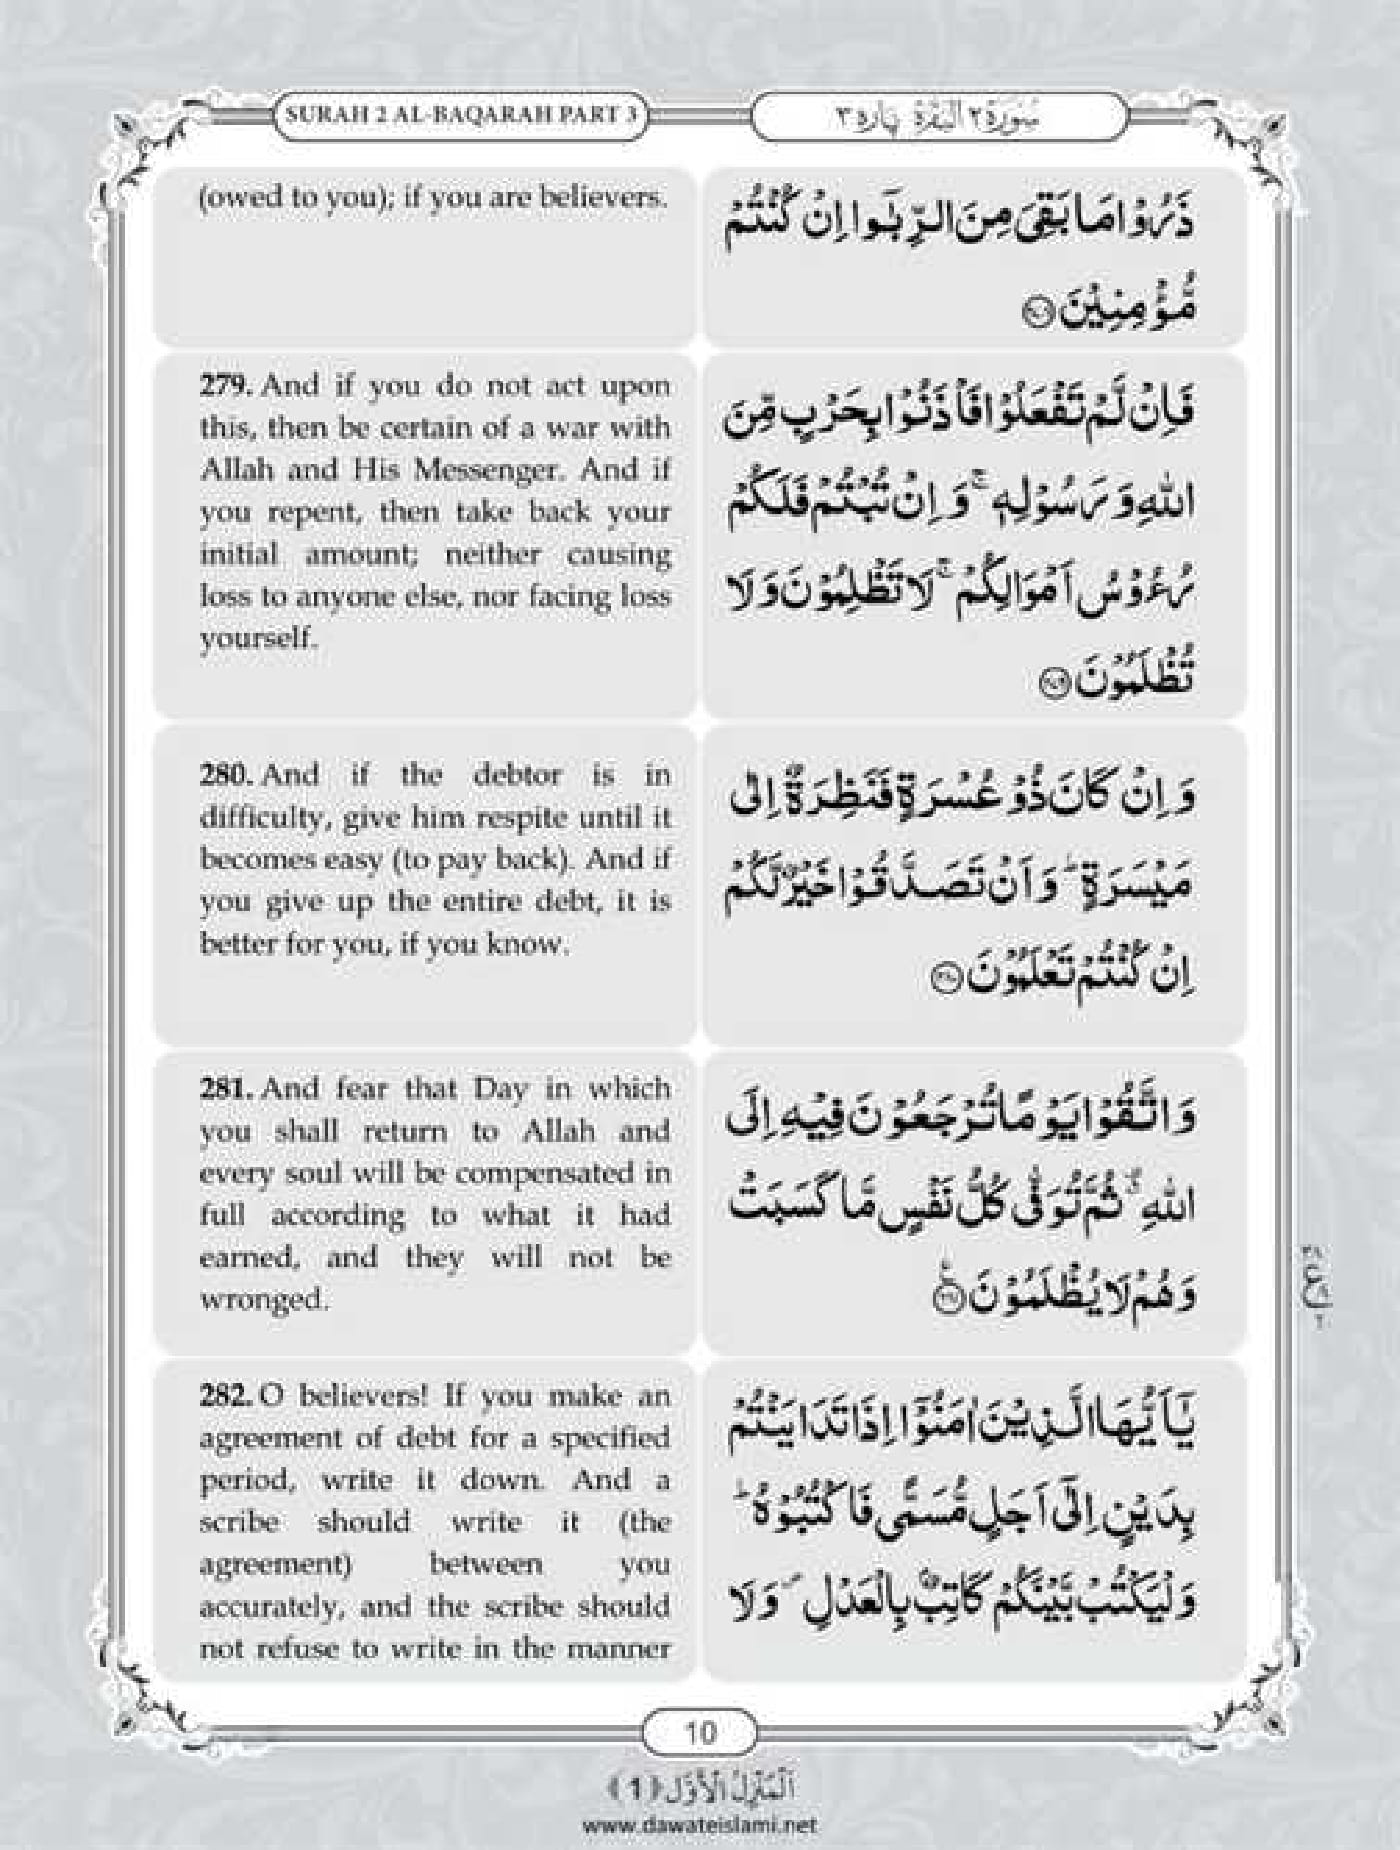 SURAH 2 AL-BAQARAH PART 3
سُوْرَةُ ٢ الْبَقَرَة پاره ٣
(owed to you); if you are believers.
ذَرُوْا مَا بَقِیَ مِنَ الرِّبٰۤوا اِنْ كُنْتُمْ
مُّؤْمِنِیْنَ ﴿۲۷۸﴾
279. And if you do not act upon
this, then be certain of a war with
Allah and His Messenger. And if
you repent, then take back your
initial amount; neither causing
loss to anyone else, nor facing loss
yourself.
فَاِنْ لَّمْ تَفْعَلُوْا فَاْذَنُوْا بِحَرْبٍ مِّنَ
اللّٰهِ وَ رَسُوْلِهٖ ۚ وَ اِنْ تُبْتُمْ فَلَكُمْ
رُءُوْسُ اَمْوَالِكُمْ ۚ لَا تَظْلِمُوْنَ وَ لَا
تُظْلَمُوْنَ ﴿۲۷۹﴾
280. And if the debtor is in
difficulty, give him respite until it
becomes easy (to pay back). And if
you give up the entire debt, it is
better for you, if you know.
وَ اِنْ كَانَ ذُوْ عُسْرَةٍ فَنَظِرَةٌ اِلٰى
مَیْسَرَةٍ ؕ وَ اَنْ تَصَدَّقُوْا خَیْرٌ لَّكُمْ
اِنْ كُنْتُمْ تَعْلَمُوْنَ ﴿۲۸۰﴾
281. And fear that Day in which
you shall return to Allah and
every soul will be compensated in
full according to what it had
earned, and they will not be
wronged.
وَ اتَّقُوْا یَوْمًا تُرْجَعُوْنَ فِیْهِ اِلَى
اللّٰهِ ۗ ثُمَّ تُوَفّٰى كُلُّ نَفْسٍ مَّا كَسَبَتْ
وَ هُمْ لَا یُظْلَمُوْنَ ﴿۲۸۱﴾
282. O believers! If you make an
agreement of debt for a specified
period, write it down. And a
scribe should write it (the
agreement) between you
accurately, and the scribe should
not refuse to write in the manner
یٰۤاَیُّهَا الَّذِیْنَ اٰمَنُوْۤا اِذَا تَدَایَنْتُمْ
بِدَیْنٍ اِلٰۤى اَجَلٍ مُّسَمًّى فَاكْتُبُوْهُ ؕ
وَ لْیَكْتُبْ بَّیْنَكُمْ كَاتِبٌۢ بِالْعَدْلِ ۪ وَ لَا
10
اَلْمَنْزِلُ الْاَوَّل ﴿1﴾
www.dawateislami.net